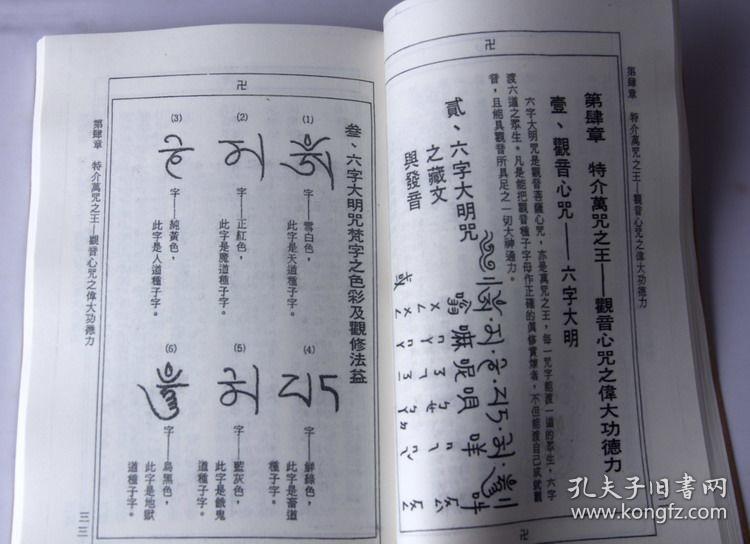 第肆章 特介萬咒之王——觀音心咒之偉大功德力
卍
第肆章 特介萬咒之王——觀音心咒之偉大功德力
壹、觀音心咒——六字大明
六字大明咒是觀音菩薩心咒，亦是萬咒之王，每一咒字能渡一道的眾生，六字
渡六道之眾生。凡是能把觀音種子字母作正確的
音，且能具觀音所具足之一切大神通力。
貳、六字大明咒
之藏文
與發音
嗡 嘛 呢 唄 咩 吽
或
卍
卍
叄、六字大明咒梵字之色彩及觀修法益
(1)
字——雪白色，
此字是天道種子字。
(2)
字——正紅色，
此字是魔道種子字。
(3)
字——純黃色，
此字是人道種子字。
(4)
字——鮮綠色，
此字是畜道
種子字。
(5)
字——藍灰色，
此字是餓鬼
道種子字。
(6)
字——烏黑色，
此字是地獄
道種子字。
第肆章 特介萬咒之王——觀音心咒之偉大功德力
三三
孔夫子旧书网
www.kongfz.com